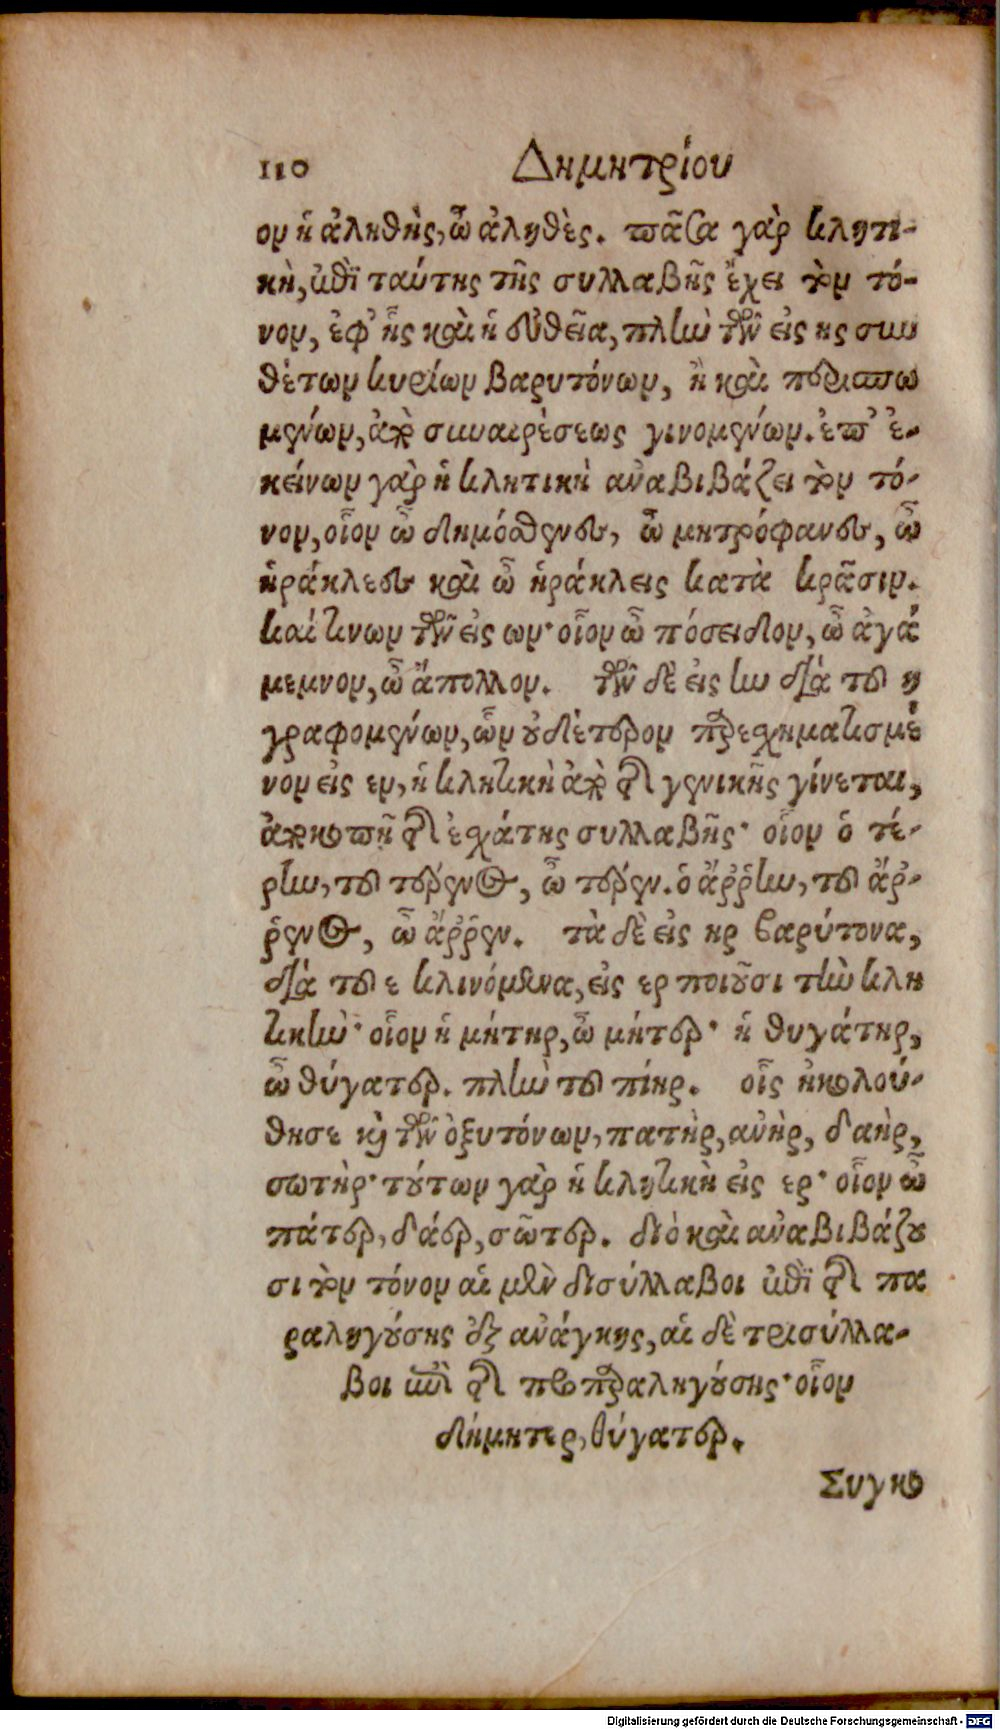 110 Δημητρίου
ον ἡ ἀληθὴς, ὦ ἀληθὲς. πᾶσα γὰρ κλητι-
κὴ, ἐπὶ ταύτης τῆς συλλαβῆς ἔχει τὸν τό-
νον, ἐφ' ἧς καὶ ἡ εὐθεῖα, πλὴν τῶν εἰς ης συν
θέτων κυρίων βαρυτόνων, ἢ καὶ περισπω
μένων, ἀπὸ συναιρέσεως γινομένων. ἐπ' ἐ-
κείνων γὰρ ἡ κλητικὴ ἀναβιβάζει τὸν τό-
νον, οἷον ὦ δημόσθενες, ὦ μητρόφανες, ὦ
ἡράκλεες καὶ ὦ ἡράκλεις κατὰ κρᾶσιν.
καί τινων τῶν εἰς ων· οἷον ὦ πόσειδον, ὦ ἀγά
μεμνον, ὦ ἄπολλον. τῶν δὲ εἰς ην διὰ τοῦ η
γραφομένων, ὧν οὐδέτερον παρεσχηματισμέ
νον εἰς εν, ἡ κλητικὴ ἀπὸ τῆς γενικῆς γίνεται,
ἀποκοπῇ τῆς ἐσχάτης συλλαβῆς· οἷον ὁ τέ-
ρην, τοῦ τέρενος, ὦ τέρεν. ὁ ἄῤῥην, τοῦ ἄῤ-
ῥενος, ὦ ἄῤῥεν. τὰ δὲ εἰς ηρ βαρύτονα,
διὰ τοῦ ε κλινόμενα, εἰς ερ ποιοῦσι τὴν κλη
τικὴν· οἷον ἡ μήτηρ, ὦ μήτερ· ἡ θυγάτηρ,
ὦ θύγατερ. πλὴν τοῦ πίηρ. οἷς ἠκολού-
θησε καὶ τῶν ὀξυτόνων, πατὴρ, ἀνὴρ, δαὴρ,
σωτὴρ· τούτων γὰρ ἡ κλητικὴ εἰς ερ· οἷον ὦ
πάτερ, δάερ, σῶτερ. διὸ καὶ ἀναβιβάζου
σι τὸν τόνον αἱ μὲν δισύλλαβοι ἐπὶ τῆς πα
ραληγούσης ἐξ ἀνάγκης, αἱ δὲ τρισύλλα-
βοι ἐπὶ τῆς προπαραληγούσης· οἷον
δήμητερ, θύγατερ.
Συγκο
Digitalisierung gefördert durch die Deutsche Forschungsgemeinschaft - DFG